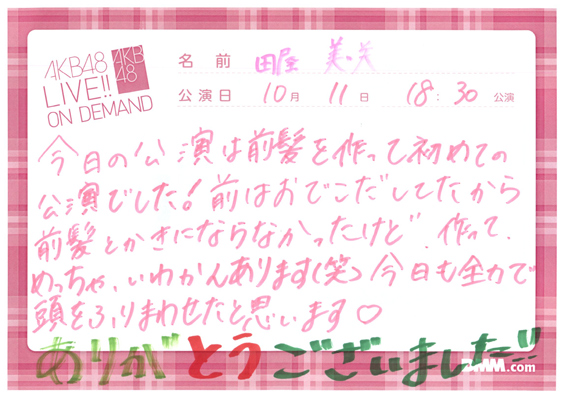 AKB48
LIVE!!
ON DEMAND
AKB
48
名前 田屋 美咲
公演日 10月 11日 18:30 公演
今日の公演は前髪を作って初めての
公演でした!前はおでこだしてたから
前髪とかきにならなかったけど、作って、
めっちゃ、いわかんあります(笑)今日も全力で
頭をふりまわせたと思います♡
ありがとうございました!!
DMM.com